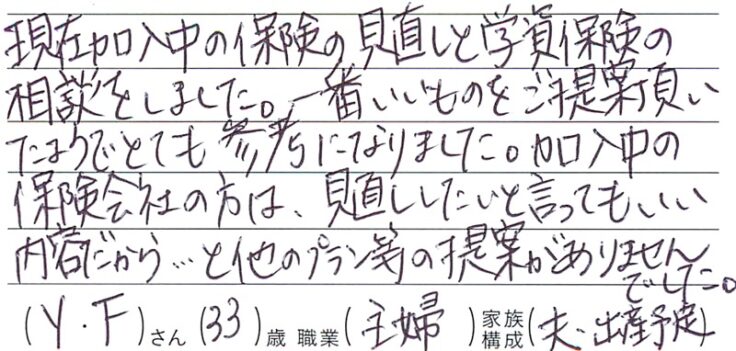 現在加入中の保険の見直しと学資保険の
相談をしました。一番いいものをご提案頂い
たようでとても参考になりました。加入中の
保険会社の方は、見直ししたいと言ってもいい
内容だから…と他のプラン等の提案がありません
でした。
(Y・F)さん(33)歳 職業(主婦)家族構成(夫・出産予定)